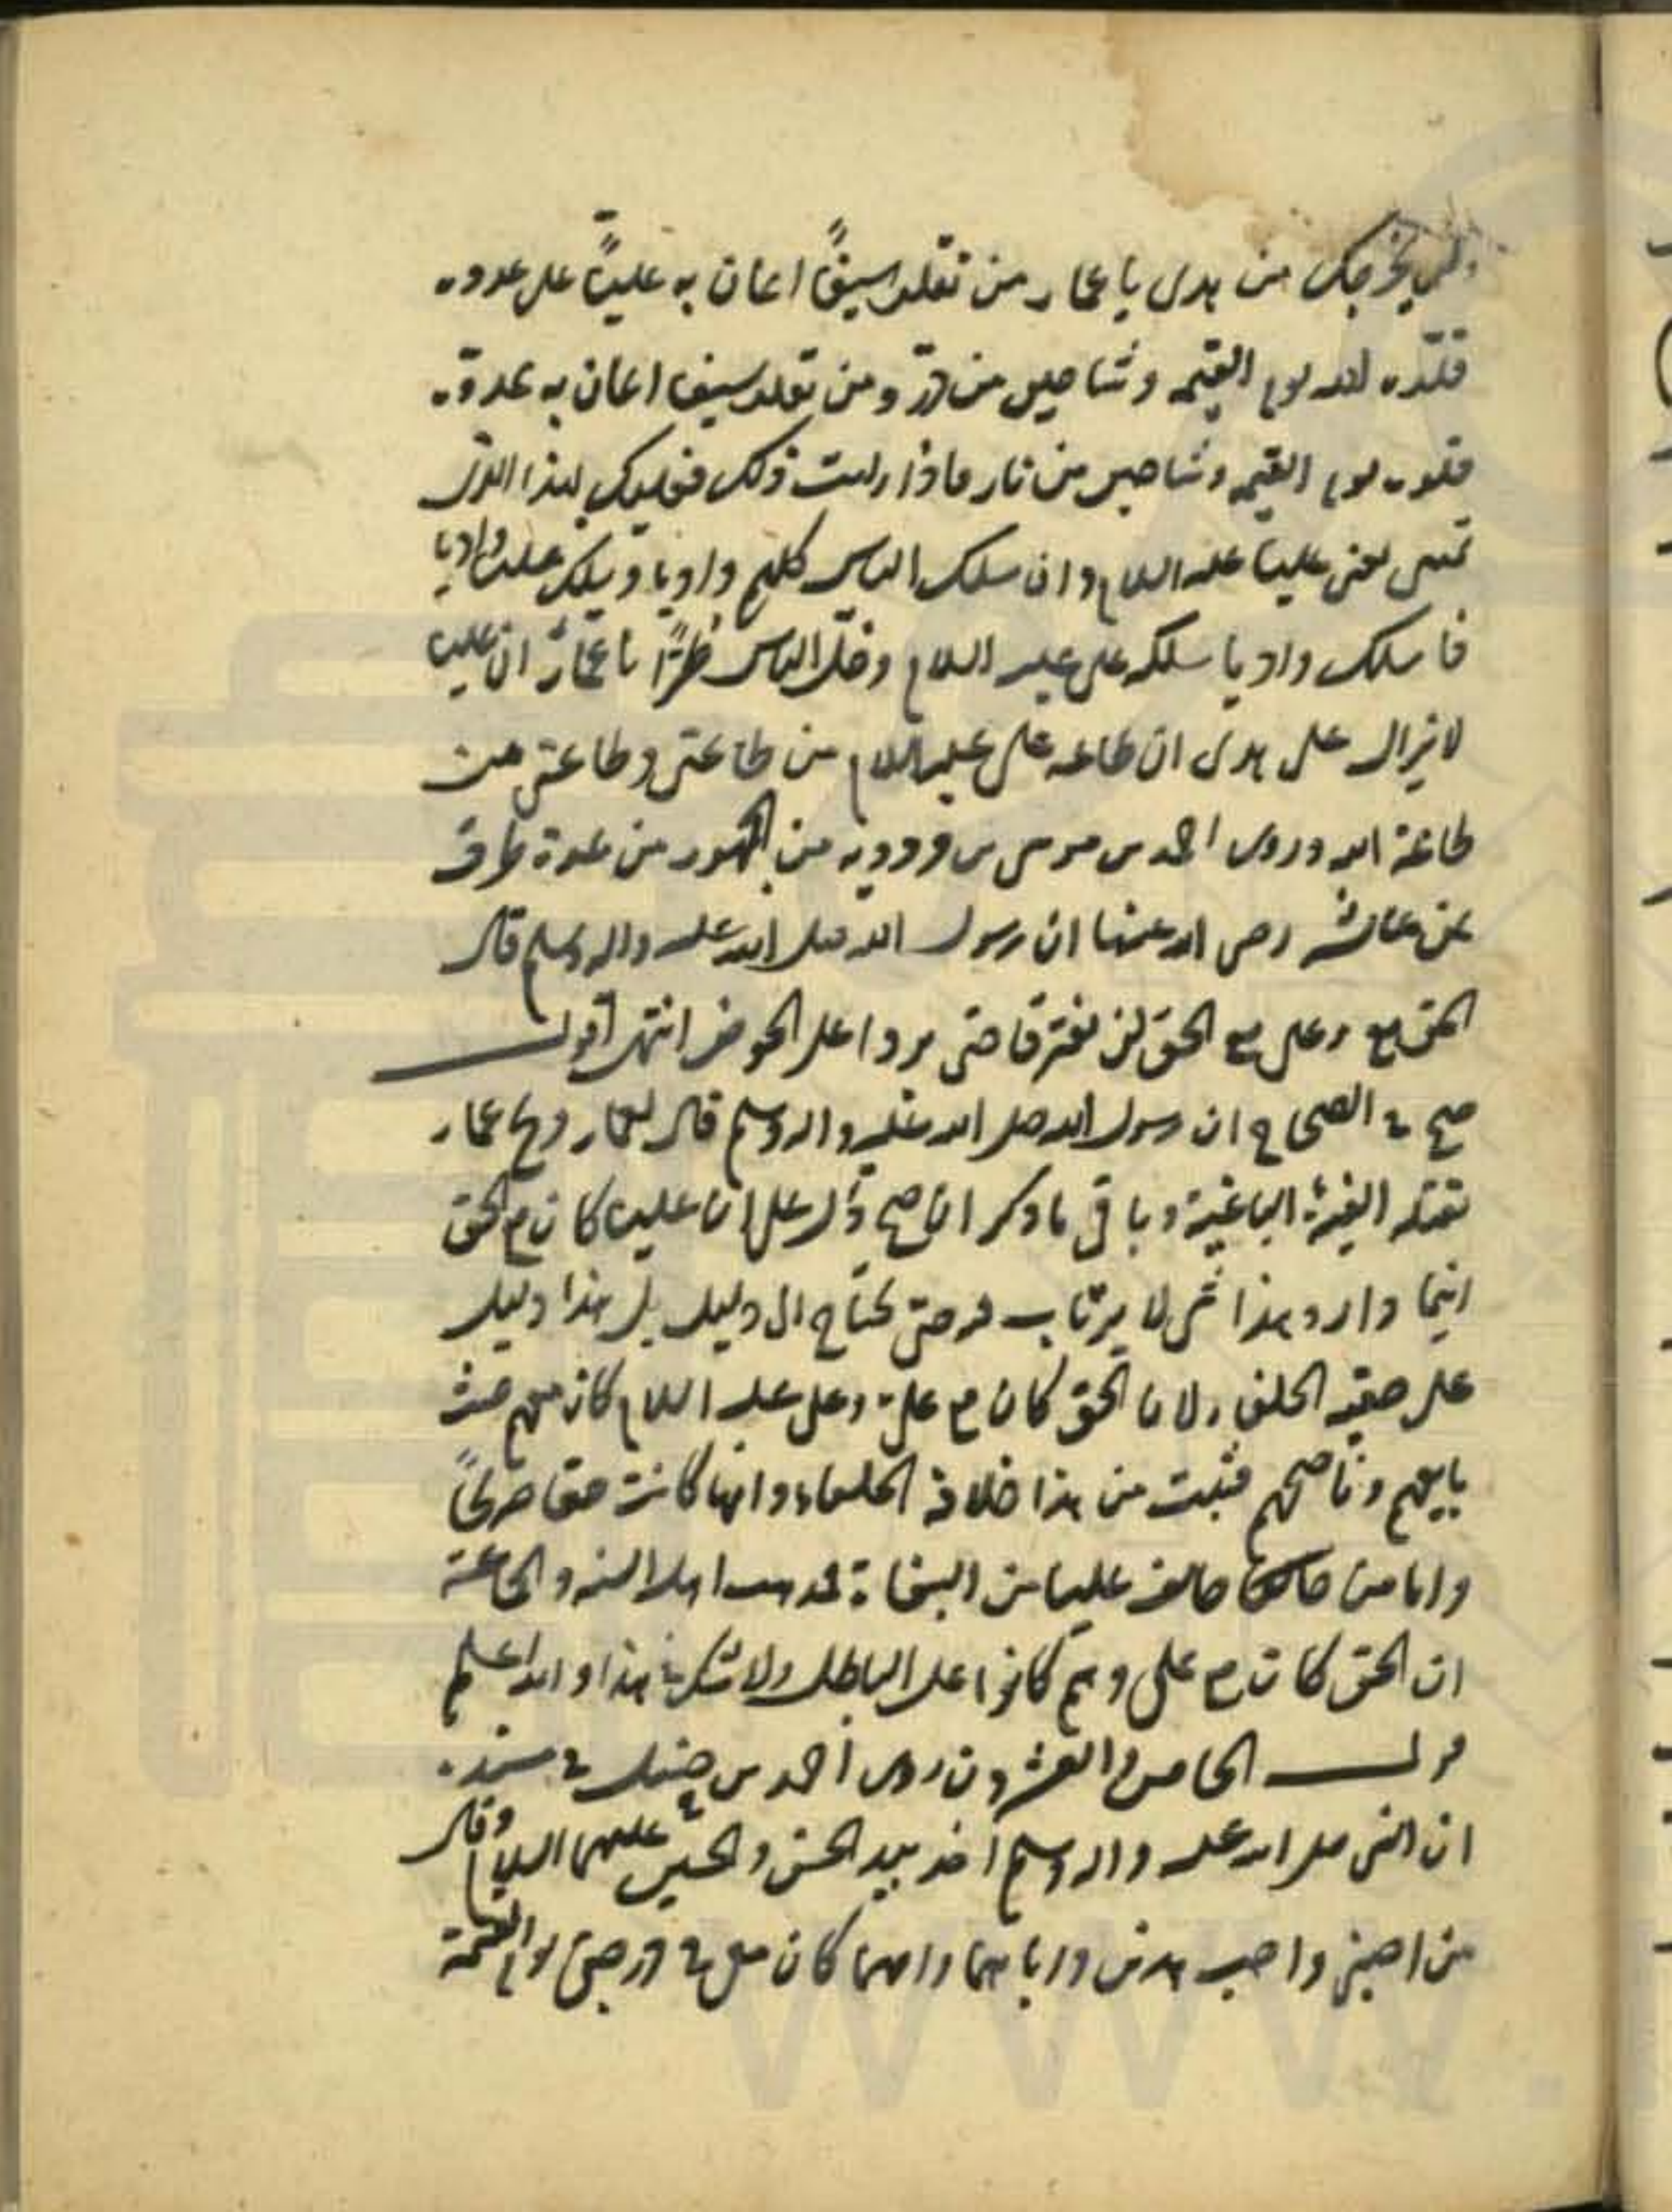 ولن يخرجك من هدى يا عمار من تقلد سيفاً اعان به علياً على عدوه
قلّده الله يوم القيمه وشاحين من درّ ومن تقلد سيفا اعان به عدوّه
قلده يوم القيمه وشاحين من نار فاذا رايت ذلك فعليك بهذا الذى
يعنى عليا عليه السلام وان سلك الناس كلهم واديا ويسلك على واديا
فاسلك واديا سلكه على عليه السلام وخلّ الناس طرّاً يا عمار ان عليا
لا يزال على هدى ان طاعه على عليه السلام من طاعتى وطاعتى من
طاعة الله وروى احمد بن موسى بن مردويه من الجمهور من عدة طرق
عن عائشه رضى الله عنها ان رسول الله صلى الله عليه واله وسلم قال
الحق مع على مع الحق لن يفترقا حتى يردا على الحوض انتهى اقول
صح فى الصحاح ان رسول الله صلى الله عليه واله وسلم قال لعمار ويح عمار
تقتله الفئة الباغية وباقى ما ذكر ان صح دل على ان عليا كان مع الحق
اينما دار وهذا شى لا يرتاب فيه حتى يحتاج الى دليل بل هذا دليل
على حقيه الخلفا ولان الحق كان مع على وعلى عليه السلام كان معهم حيث
بايعهم وناصحهم فثبت من هذا خلافة الخلفاء وانها كانت حقا صريحاً
واما من خالف عليا من البغاة فمذهب اهل السنه والجماعة
ان الحق كان مع على وهم كانوا على الباطل ولا شك فى هذا والله اعلم
قوله الخامس والعشرون روى احمد بن حنبل فى مسنده
ان النبى صلى الله عليه واله وسلم اخذ بيد الحسن والحسين عليهما السلام وقال
من احبنى واحب هذين واباهما وامهما كان معى فى درجتى يوم القيمة